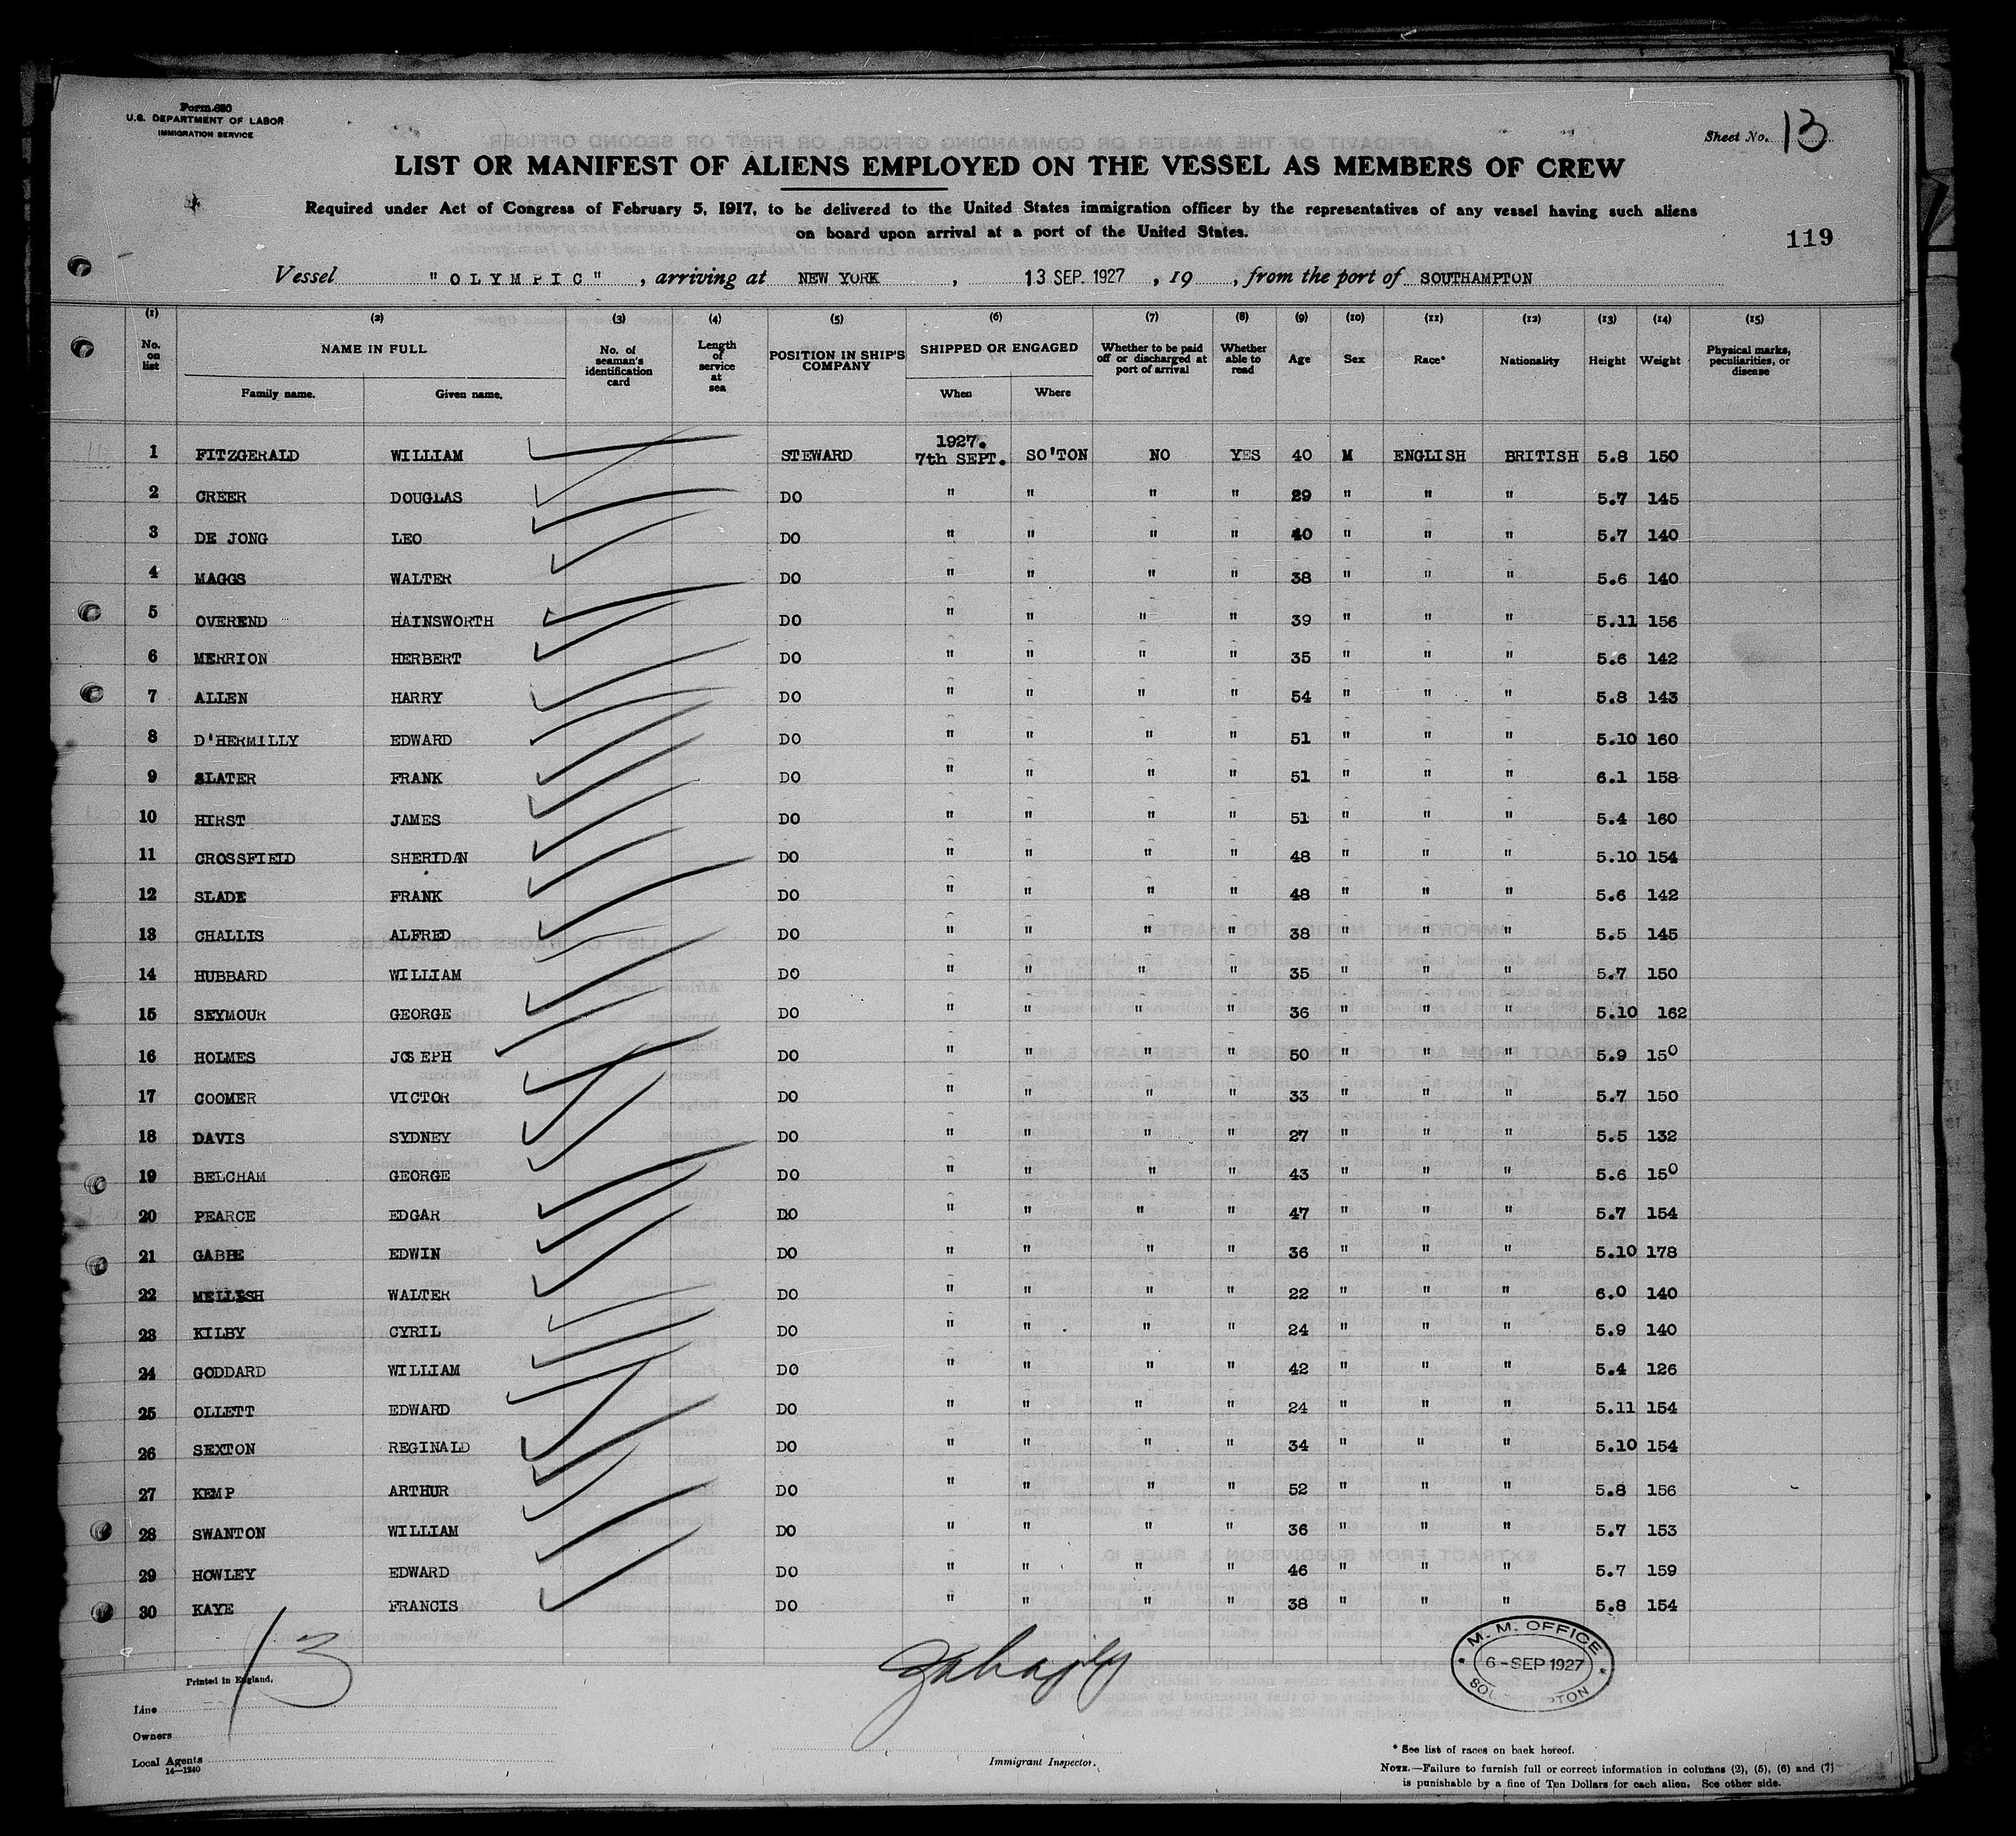 Form 680
U.S. DEPARTMENT OF LABOR
IMMIGRATION SERVICE
Sheet No. 13
LIST OR MANIFEST OF ALIENS EMPLOYED ON THE VESSEL AS MEMBERS OF CREW
Required under Act of Congress of February 5, 1917, to be delivered to the United States immigration officer by the representatives of any vessel having such aliens
on board upon arrival at a port of the United States.
119
Vessel "OLYMPIC", arriving at NEW YORK, 13 SEP. 1927, 19 , from the port of SOUTHAMPTON
(1) (2) (3) (4) (5) (6) (7) (8) (9) (10) (11) (12) (13) (14) (15)
No. on list NAME IN FULL No. of seaman's identification card Length of service at sea POSITION IN SHIP'S COMPANY SHIPPED OR ENGAGED Whether to be paid off or discharged at port of arrival Whether able to read Age Sex Race* Nationality Height Weight Physical marks, peculiarities, or disease
Family name. Given name. When Where
1927.
1 FITZGERALD WILLIAM STEWARD 7th SEPT. SO'TON NO YES 40 M ENGLISH BRITISH 5.8 150
2 CREER DOUGLAS DO " " " " 29 " " " 5.7 145
3 DE JONG LEO DO " " " " 40 " " " 5.7 140
4 MAGGS WALTER DO " " " " 38 " " " 5.6 140
5 OVEREND HAINSWORTH DO " " " " 39 " " " 5.11 156
6 MERRION HERBERT DO " " " " 35 " " " 5.6 142
7 ALLEN HARRY DO " " " " 54 " " " 5.8 143
8 D'HERMILLY EDWARD DO " " " " 51 " " " 5.10 160
9 SLATER FRANK DO " " " " 51 " " " 6.1 158
10 HIRST JAMES DO " " " " 51 " " " 5.4 160
11 CROSSFIELD SHERIDAN DO " " " " 48 " " " 5.10 154
12 SLADE FRANK DO " " " " 48 " " " 5.6 142
13 CHALLIS ALFRED DO " " " " 38 " " " 5.5 145
14 HUBBARD WILLIAM DO " " " " 35 " " " 5.7 150
15 SEYMOUR GEORGE DO " " " " 36 " " " 5.10 162
16 HOLMES JOSEPH DO " " " " 50 " " " 5.9 150
17 COOMER VICTOR DO " " " " 33 " " " 5.7 150
18 DAVIS SYDNEY DO " " " " 27 " " " 5.5 132
19 BELCHAM GEORGE DO " " " " 43 " " " 5.6 150
20 PEARCE EDGAR DO " " " " 47 " " " 5.7 154
21 GABBE EDWIN DO " " " " 36 " " " 5.10 178
22 MELLISH WALTER DO " " " " 22 " " " 6.0 140
23 KILBY CYRIL DO " " " " 24 " " " 5.9 140
24 GODDARD WILLIAM DO " " " " 42 " " " 5.4 126
25 OLLETT EDWARD DO " " " " 24 " " " 5.11 154
26 SEXTON REGINALD DO " " " " 34 " " " 5.10 154
27 KEMP ARTHUR DO " " " " 52 " " " 5.8 156
28 SWANTON WILLIAM DO " " " " 36 " " " 5.7 153
29 HOWLEY EDWARD DO " " " " 46 " " " 5.7 159
30 KAYE FRANCIS DO " " " " 38 " " " 5.8 154
13
M. M. OFFICE
6-SEP 1927
Printed in England.
Line
Owners
Local Agents
14-1240
Immigrant Inspector.
* See list of races on back hereof.
NOTE.—Failure to furnish full or correct information in columns (2), (5), (6) and (7)
is punishable by a fine of Ten Dollars for each alien. See other side.